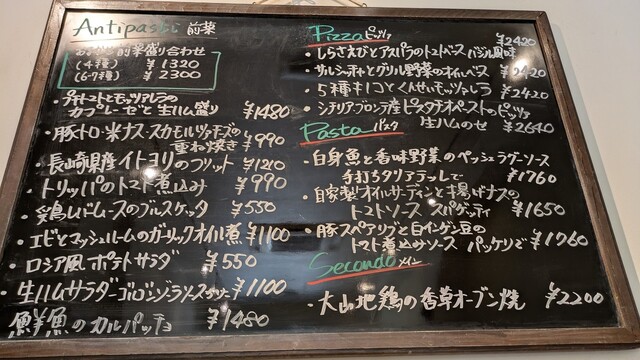 Antipasti 前菜
前菜盛り合わせ
(4種) ¥1320
(6-7種) ¥2300
・プチトマトとモッツァレラの
カプレーゼと生ハム盛り ¥1480
・豚トロ・米ナス・スカモルツァチーズの
重ね焼き ¥990
・長崎県産イトヨリのフリット ¥1210
・トリッパのトマト煮込み ¥990
・鶏レバームースのブルスケッタ ¥550
・エビとマッシュルームのガーリックオイル煮 ¥1100
・ロシア風ポテトサラダ ¥550
・生ハムサラダ ゴルゴンゾーラソース ¥1100
鮮魚のカルパッチョ ¥1480
Pizza ピッツァ
¥2420
・しらさえびとアスパラのトマトベース バジル風味
・サルシッチャとグリル野菜のオイルベース ¥2420
・5種キノコとくんせいモッツァレラ ¥2420
・シチリア・ブロンテ産ピスタチオペーストのピッツァ
生ハムのせ ¥2640
Pasta パスタ
・白身魚と香味野菜のペッシェラグーソース
手打ちタリアテッレで ¥1760
・自家製オイルサーディンと揚げナスの
トマトソース スパゲッティ ¥1650
・豚スペアリブと白インゲン豆の
トマト煮込みソース パッケリで ¥1760
Secondo メイン
・大山地鶏の香草オーブン焼 ¥2200